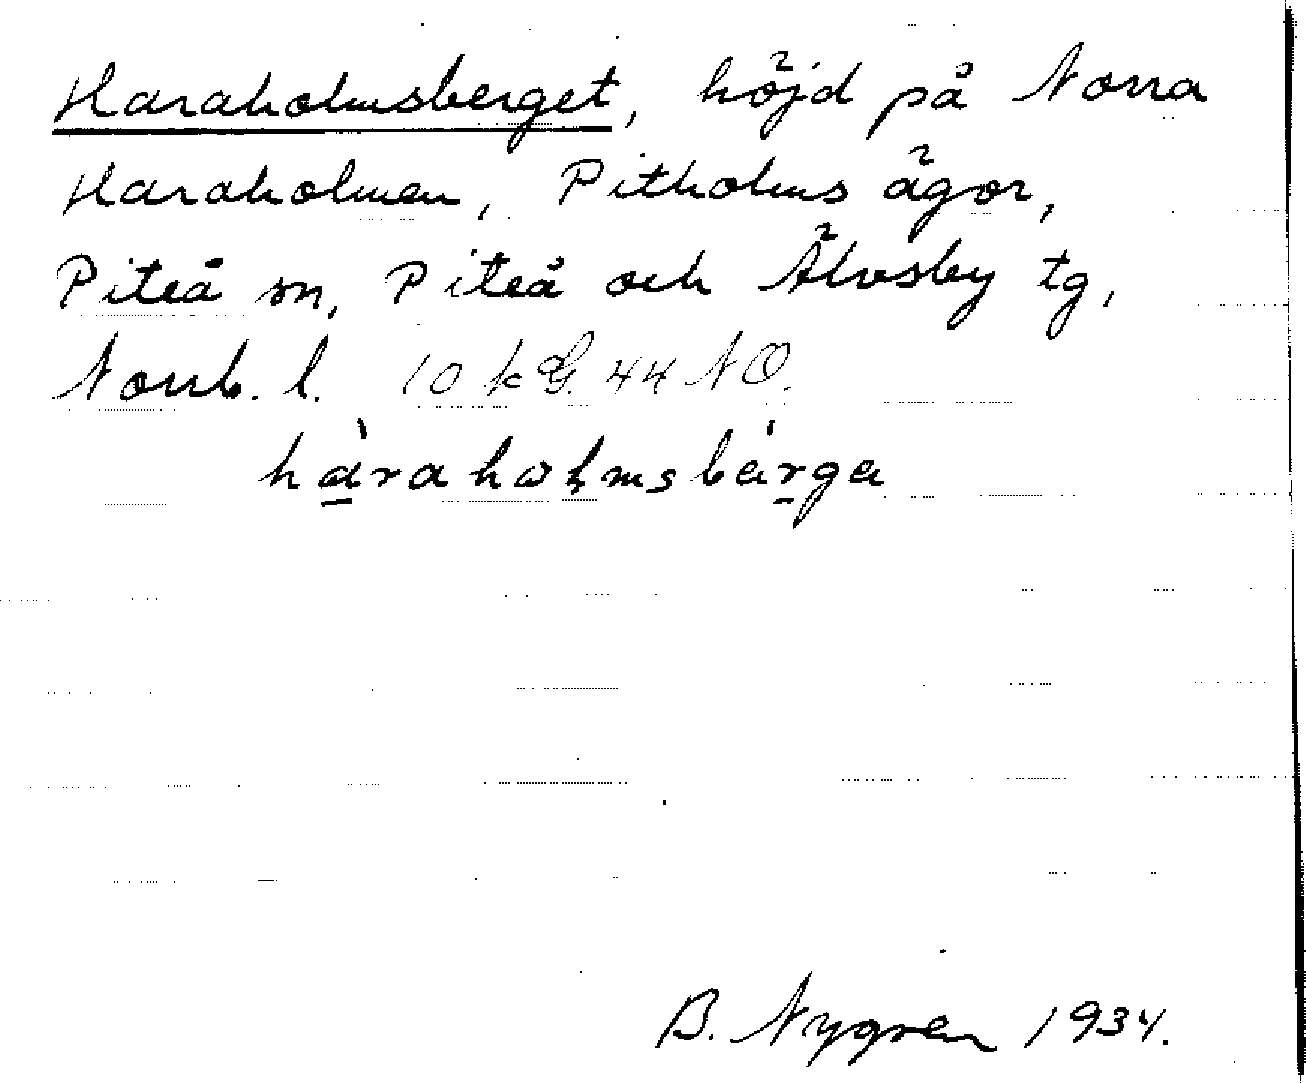 Haraholmsberget, höjd på Norra
Haraholmen, Pitholms ägor,
Piteå sn, Piteå och Älvsby tg,
Norrb. l. 10 k G. 44 NO.
B. Nygren 1934.